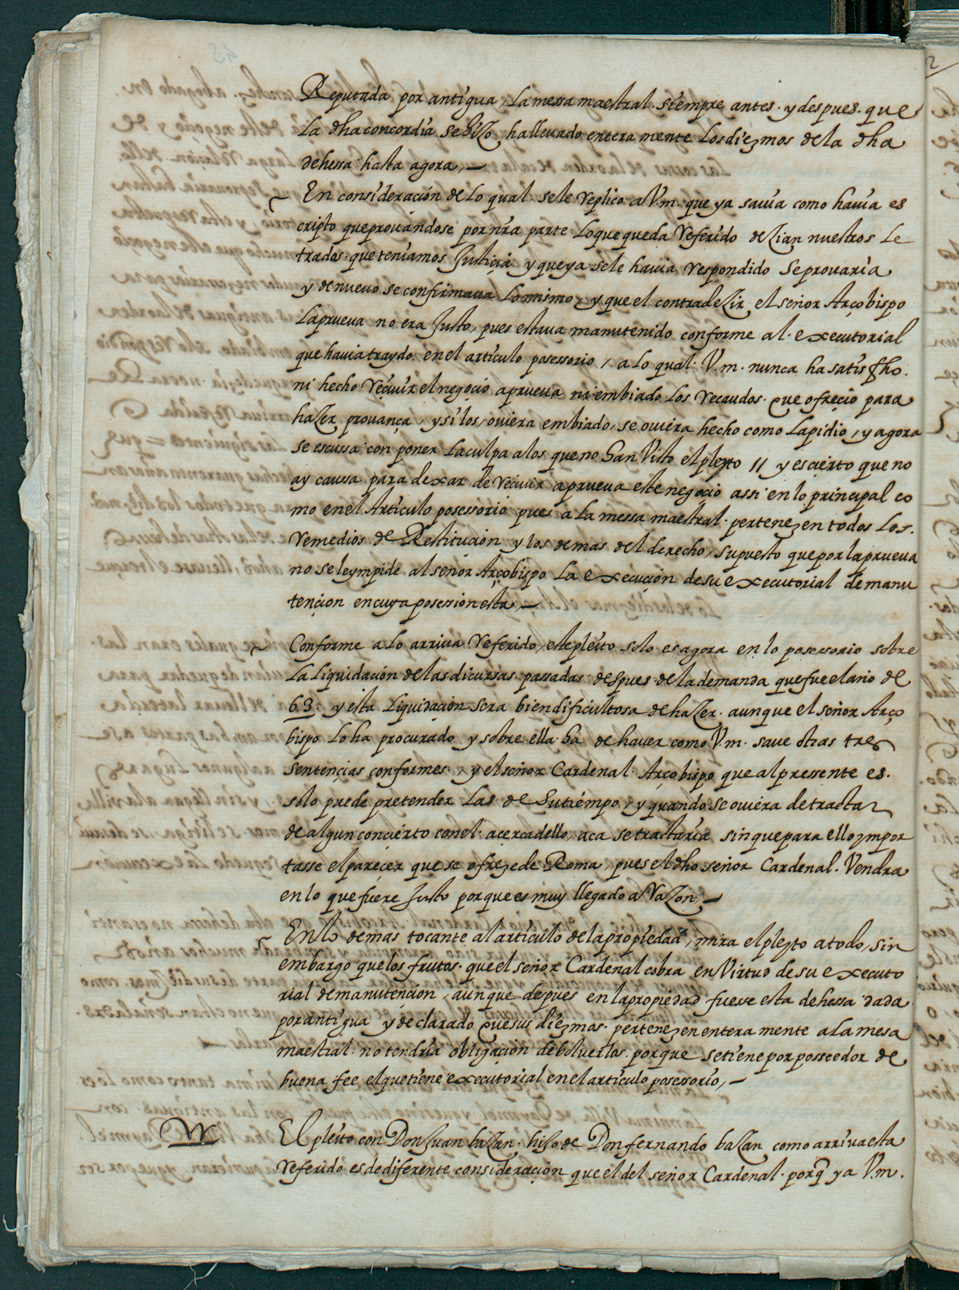 Reputada por antigua, la messa maestral siempre antes y despues que
la dha concordia se hizo ha llevado entera mente los diezmos de la dha
dehessa hasta agora,—
En consideración de lo qual se le replico a Vm. que ya savia como havia es
cripto que provándose por nra parte lo que queda referido dezian nuestros le
trados que teniamos justicia y que ya se le havia respondido se provaria
y de nuevo se confirmava lo mismo, y que el contradezir el señor Arçobispo
la prueva no era justo, pues estava manutenido conforme al executorial
que havia traydo en el articulo posessorio, a lo qual V.m. nunca ha satisfho.
ni hecho recivir el negocio a prueva ni embiado los recaudos que ofrecio para
hazer provança, y si los oviera embiado, se oviera hecho como la pidio, y agora
se escussa con poner la culpa a los que no han visto el pleyto // y es cierto que no
ay caussa para dexar de recivir a prueva este negocio assi en lo principal co
mo en el Articulo posessorio pues a la messa maestral pertenezen todos los
remedios de Restitución y los demas del derecho, supuesto que por la prueva
no se le ympide al señor Arçobispo la execución de su executorial de manu
tencion en cuya posession esta,—
Conforme a lo arriva referido, este pleito solo es agora en lo posesorio sobre
la liquidación de las discursas passadas despues de la demanda que fue el año de
63. y esta liquidación sera bien dificultosa de hazer aunque el señor Arço
bispo lo ha procurado y sobre ella ha de haver como V.m. save otras tres
sentencias conformes, y el señor Cardenal Arçobispo que al presente es.
solo puede pretender las de su tiempo, y quando se oviera de tractar
de algun concierto con el acerca dello, aca se tractaria sin que para ello ympor
tasse el parecer que se ofreze de Roma, pues el dho señor Cardenal Vendra
en lo que fuere justo porque es muy llegado a razon,—
En lo demas tocante al articulo de la propiedad, mira el pleyto a todo, sin
embargo que los frutos que el señor Cardenal cobra en Virtud de su executo
rial de manutención, aunque despues en la propiedad fuesse esta dehessa dada
por antigua y declarado que sus diezmos pertenezen entera mente a la mesa
maestral no tendria obligación de bolverlos porque se tiene por posseedor de
buena fee el que tiene executorial en el articulo posessorio,—
El pleito con Don Juan bazan hijo de Don fernando bazan como arriva esta
referido es de diferente consideración que el del señor Cardenal porq ya V.m.